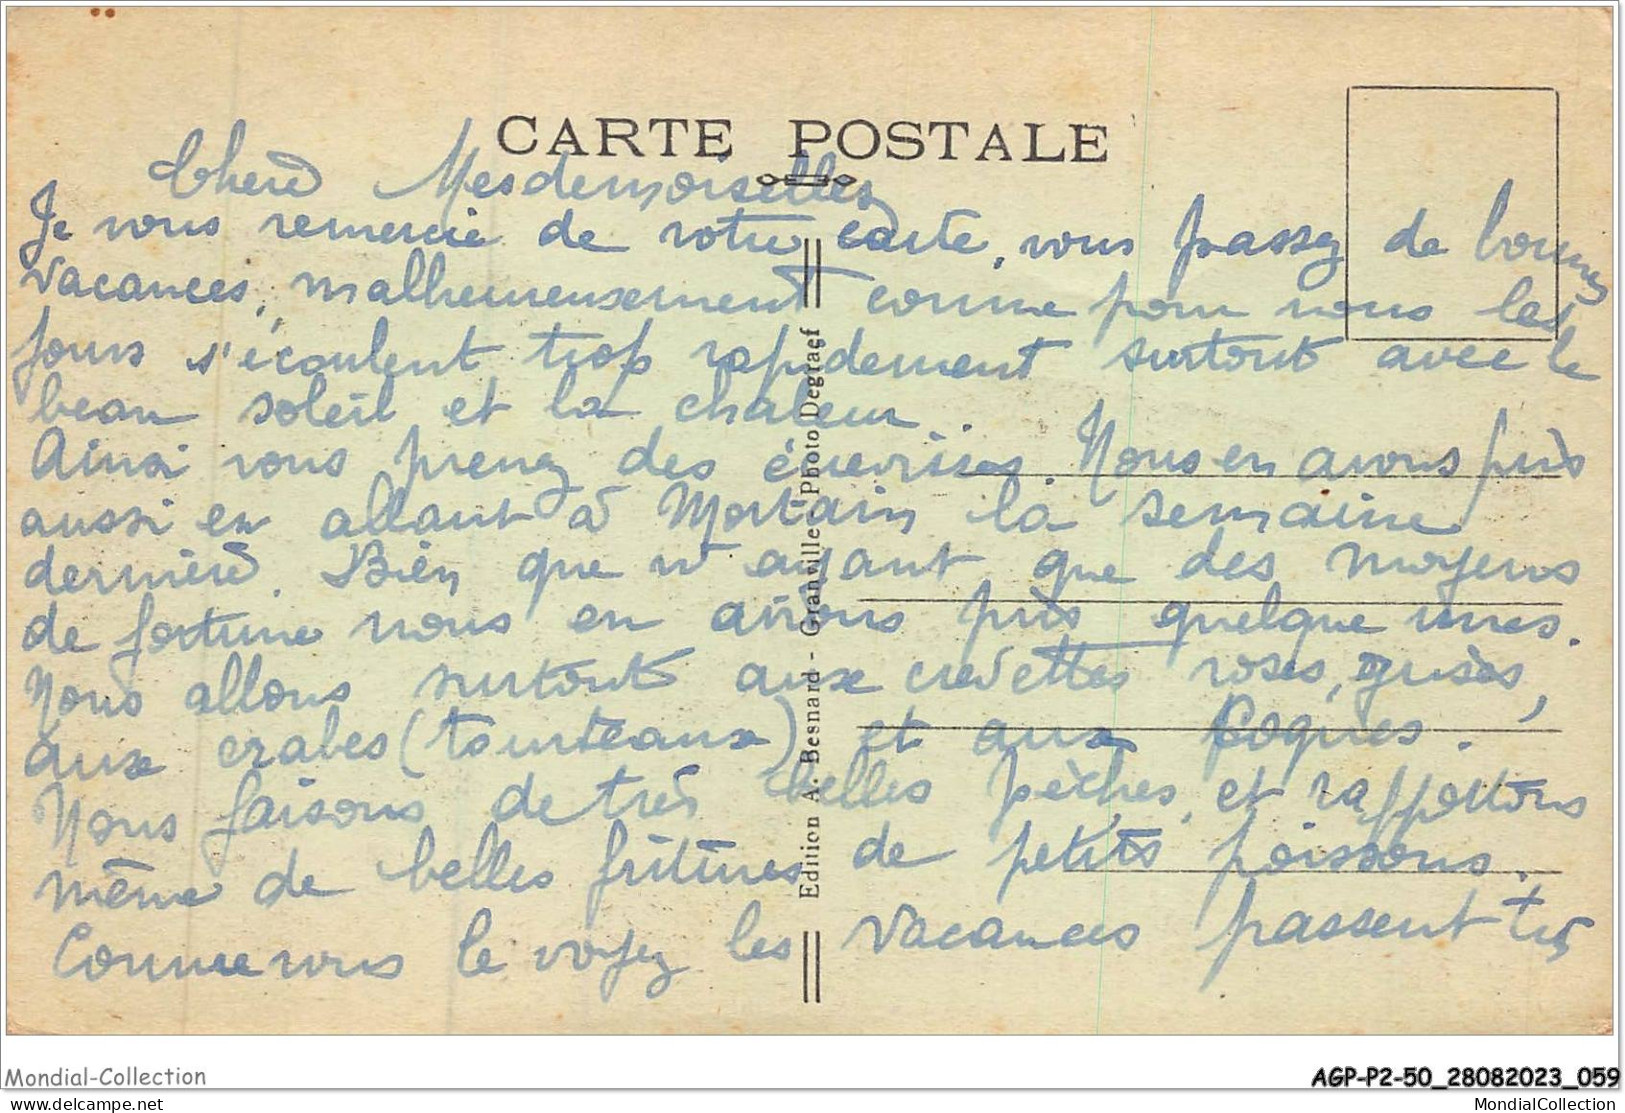 CARTE POSTALE
Chère Mesdemoiselles
Je vous remercie de votre carte, vous passez de bonnes
vacances, malheureusement comme pour nous les
jours s'écoulent trop rapidement surtout avec le
beau soleil et la chaleur
Ainsi vous prenez des écrevisses. Nous en avons pris
aussi en allant à Mortain la semaine
dernière. Bien que n'ayant que des moyens
de fortune nous en avons pris quelque unes.
Nous allons surtout aux crevettes roses, grises,
aux crabes (tourteaux) et aux Coques.
Nous faisons de très belles pèches, et rapportons
même de belles fritures de petits poissons.
Comme vous le voyez les vacances passent très
Edition A. Besnard - Granville - Photo Degraef
Mondial-Collection
AGP-P2-50_28082023_059
delcampe.net
MondialCollection